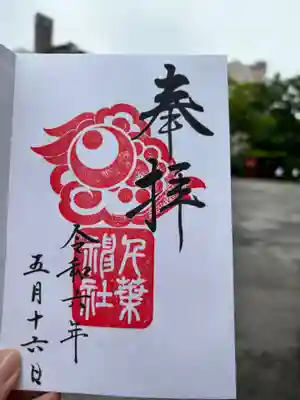 奉拝
片葉
神社
令和六年
五月十六日